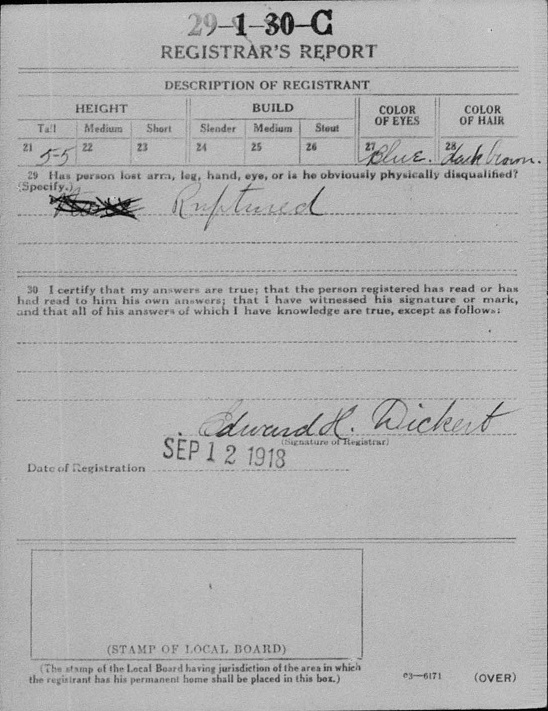 29-1-30-C
REGISTRAR'S REPORT
DESCRIPTION OF REGISTRANT
HEIGHT BUILD COLOR OF EYES COLOR OF HAIR
Tall Medium Short Slender Medium Stout
21 5-5 22 23 24 25 26 27 Blue. 28 dark brown.
29 Has person lost arm, leg, hand, eye, or is he obviously physically disqualified?
(Specify.)
Ruptured
30 I certify that my answers are true; that the person registered has read or has
had read to him his own answers; that I have witnessed his signature or mark,
and that all of his answers of which I have knowledge are true, except as follows:
Edward H. Dickert
(Signature of Registrar)
Date of Registration SEP 12 1918
(STAMP OF LOCAL BOARD)
(The stamp of the Local Board having jurisdiction of the area in which
the registrant has his permanent home shall be placed in this box.)
03—6171 (OVER)